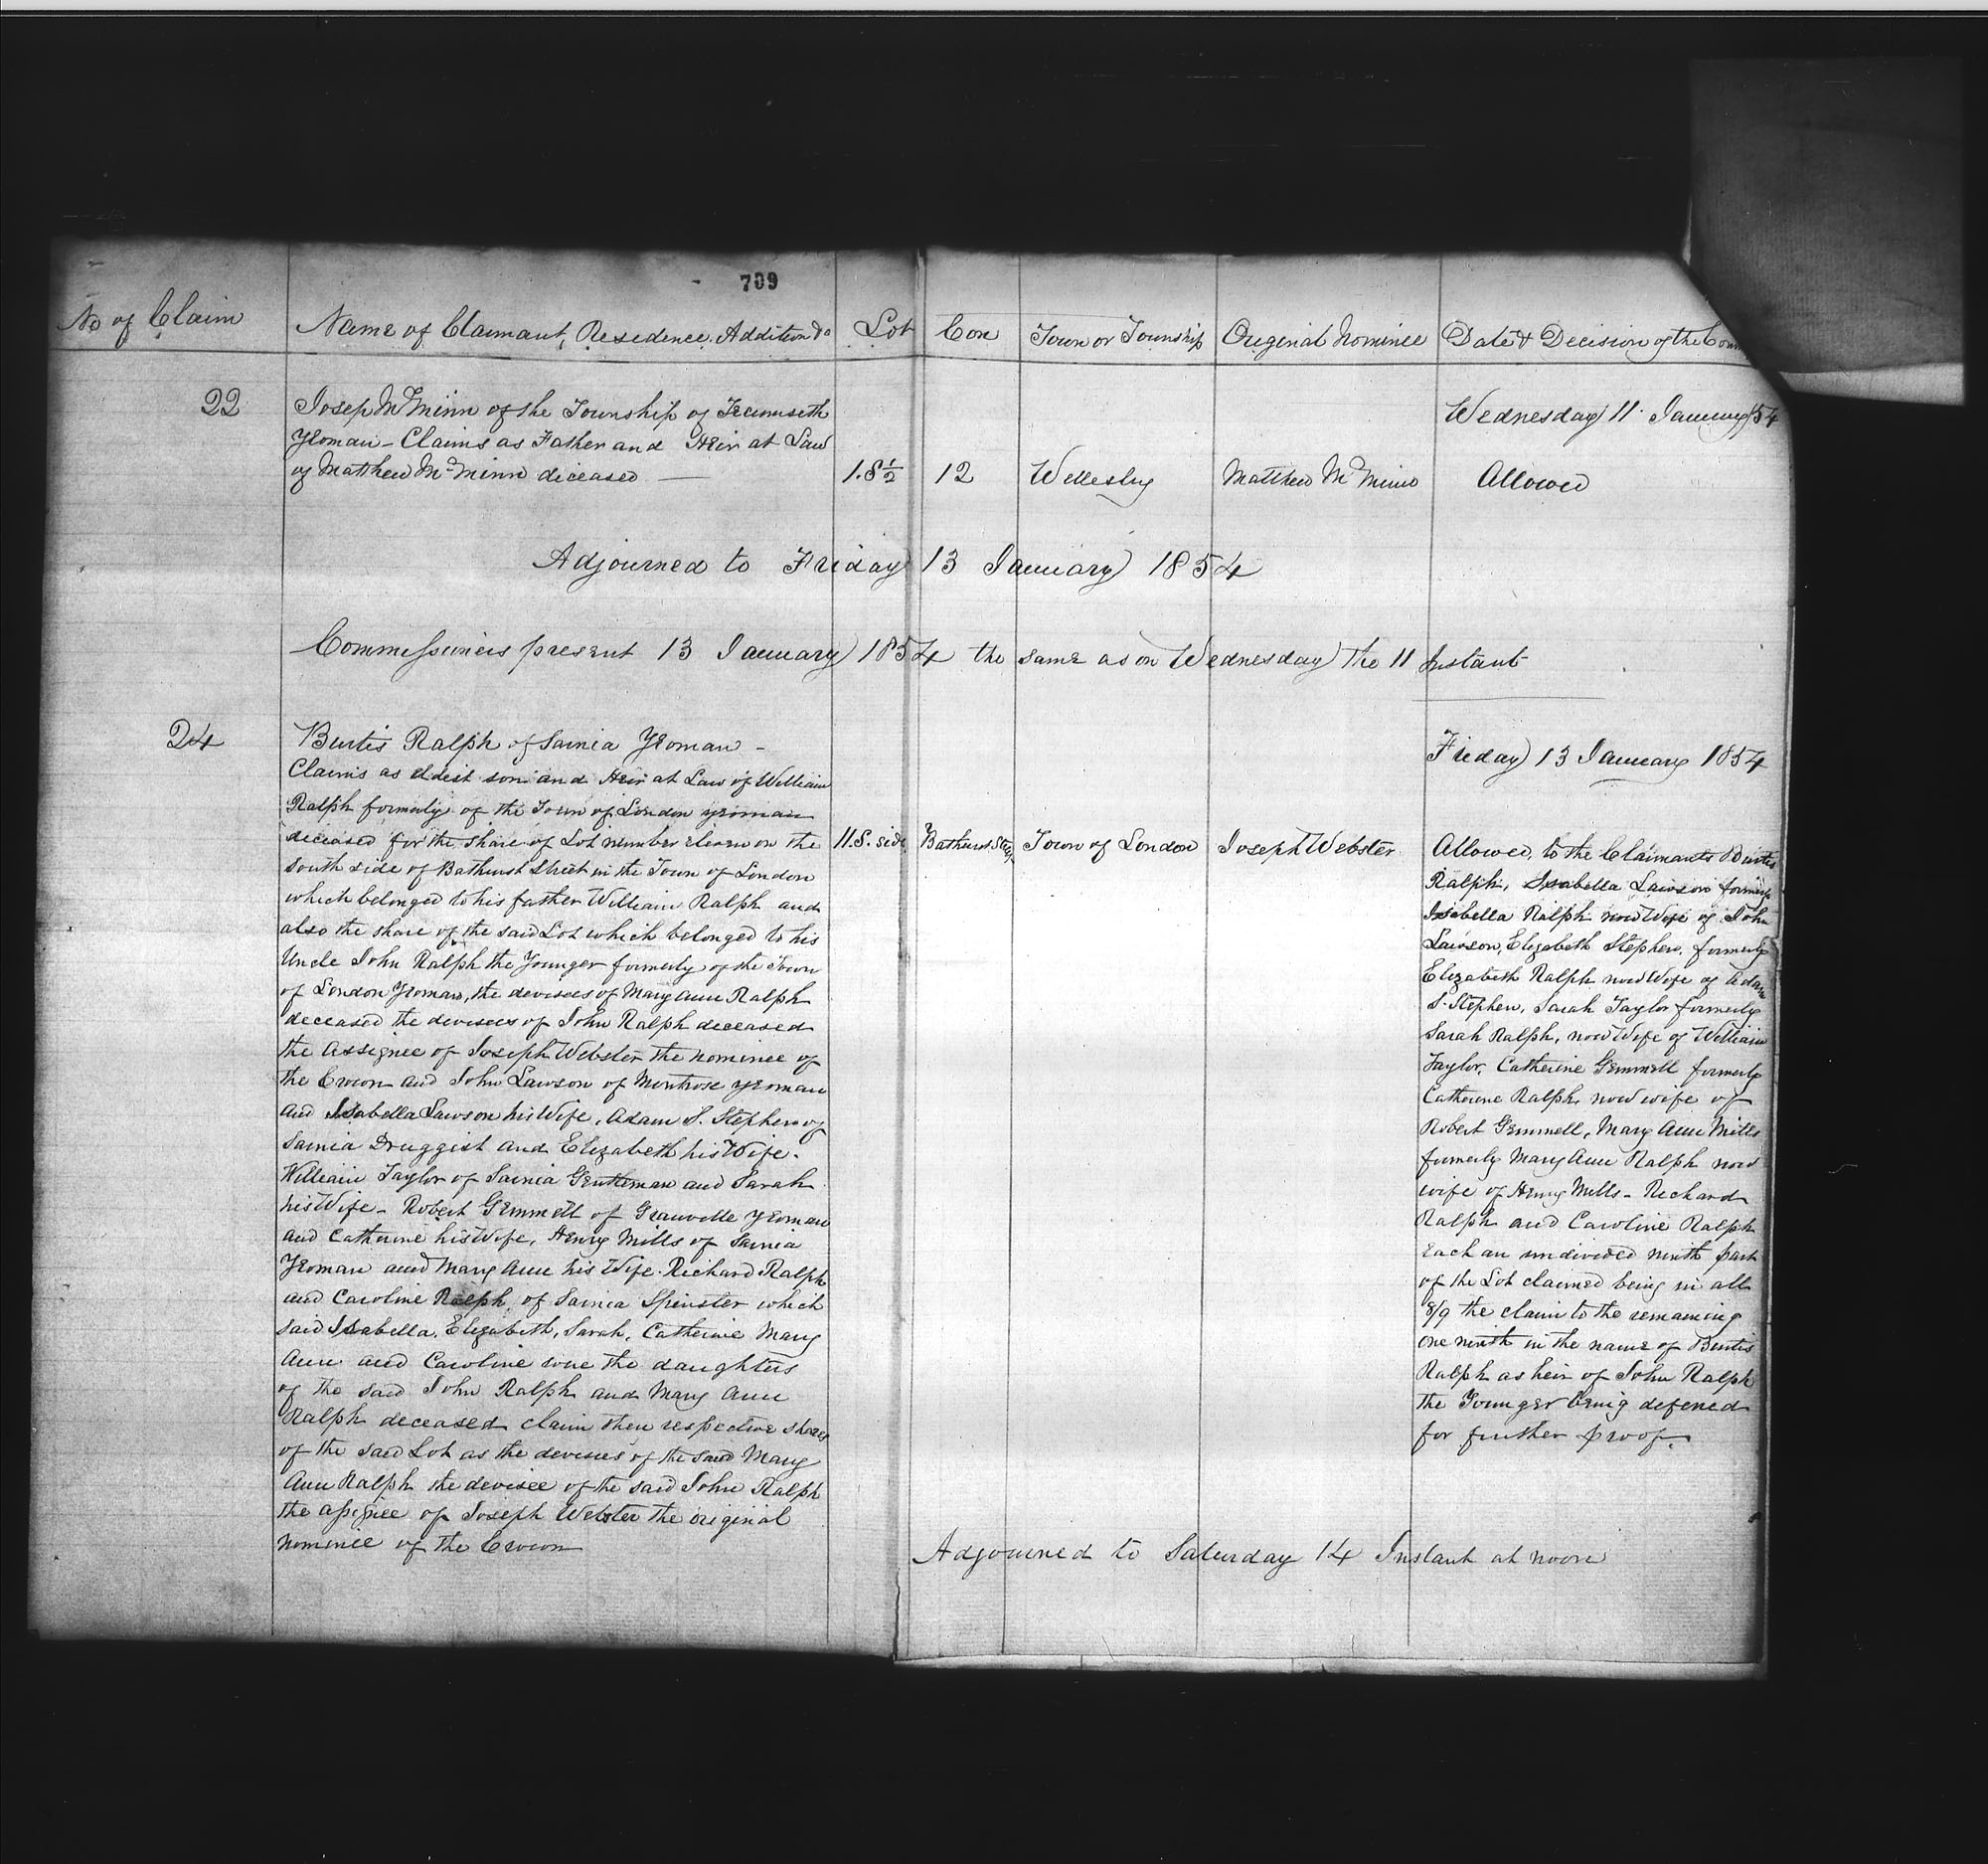 709
No of Claim
Name of Claimant, Residence, Addition &c
Lot
Con
Town or Township
Original Nominee
Date & Decision of the Com
22
Josep McMinn of the Township of Tecumseth
Yeoman - Claims as Father and Heir at Law
of Matthew McMinn deceased —
1.S ½
12
Wellesley
Matthew McMinn
Wednesday 11 January /54
Allowed
Adjourned to Friday 13 January 1854
Commissioners present 13 January 1854 the same as on Wednesday the 11 Instant
24
Burtis Ralph of Sarnia Yeoman -
Claims as eldest son and Heir at Law of William
Ralph formerly of the Town of London yeoman
deceased for the share of Lot number eleven on the
south side of Bathurst Street in the Town of London
which belonged to his father William Ralph and
also the share of the said Lot which belonged to his
Uncle John Ralph the Younger formerly of the Town
of London Yeoman, the devisees of Mary Ann Ralph
deceased the devisees of John Ralph deceased
the assignee of Joseph Webster the nominee of
the Crown and John Lawson of Montrose yeoman
and Isabella Lawson his Wife, Adam S. Stephen of
Sarnia Druggist and Elizabeth his Wife.
William Taylor of Sarnia Gentleman and Sarah
his Wife - Robert Gemmell of Granville yeoman
and Catherine his Wife, Henry Mills of Sarnia
Yeoman and Mary Ann his Wife. Richard Ralph
and Caroline Ralph of Sarnia Spinster which
said Isabella, Elizabeth, Sarah, Catherine Mary
Ann and Caroline were the daughters
of the said John Ralph and Mary Ann
Ralph deceased claim their respective shares
of the said Lot as the devisees of the said Mary
Ann Ralph the devisee of the said John Ralph
the assignee of Joseph Webster the original
nominee of the Crown
11.S. side
Bathurst Street
Town of London
Joseph Webster
Friday 13 January 1854
Allowed, to the Claimants Burtis
Ralph, Isabella Lawson formerly
Isabella Ralph now Wife of John
Lawson, Elizabeth Stephen, formerly
Elizabeth Ralph now Wife of Adam
S. Stephen, Sarah Taylor formerly
Sarah Ralph, now Wife of William
Taylor, Catherine Gemmell formerly
Catherine Ralph, now wife of
Robert Gemmell, Mary Ann Mills
formerly Mary Ann Ralph now
wife of Henry Mills - Richard
Ralph and Caroline Ralph
each an undivided ninth part
of the Lot claimed being in all
8/9 the claim to the remaining
one ninth in the name of Burtis
Ralph as heir of John Ralph
the Younger being defered
for further proof.
Adjourned to Saturday 14 Instant at noon